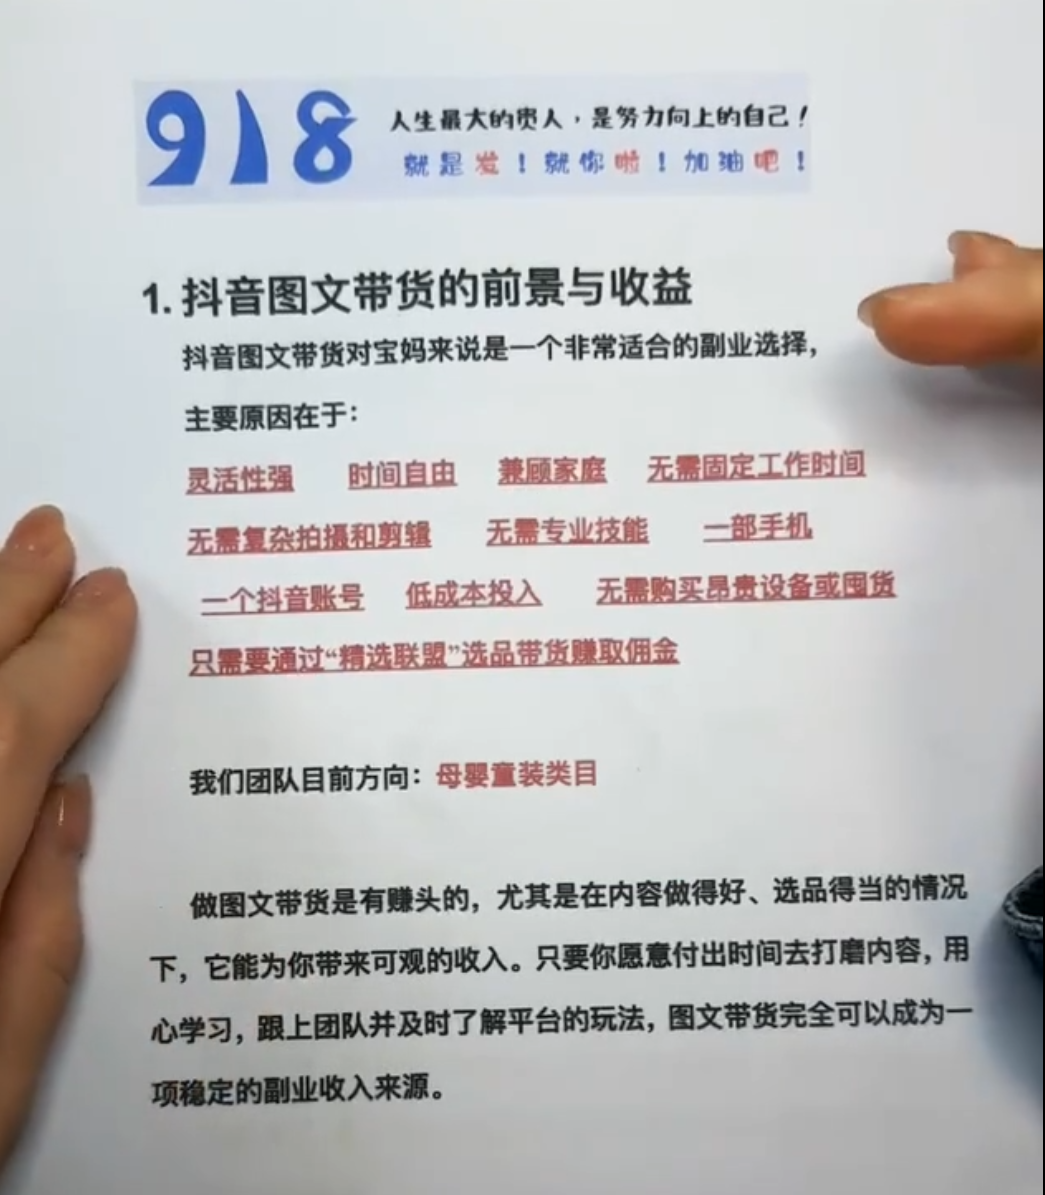 918
人生最大的贵人，是努力向上的自己！
就是发！就你啦！加油吧！
1. 抖音图文带货的前景与收益
抖音图文带货对宝妈来说是一个非常适合的副业选择，
主要原因在于：
灵活性强 时间自由 兼顾家庭 无需固定工作时间
无需复杂拍摄和剪辑 无需专业技能 一部手机
一个抖音账号 低成本投入 无需购买昂贵设备或囤货
只需要通过“精选联盟”选品带货赚取佣金
我们团队目前方向：母婴童装类目
做图文带货是有赚头的，尤其是在内容做得好、选品得当的情况
下，它能为你带来可观的收入。只要你愿意付出时间去打磨内容，用
心学习，跟上团队并及时了解平台的玩法，图文带货完全可以成为一
项稳定的副业收入来源。